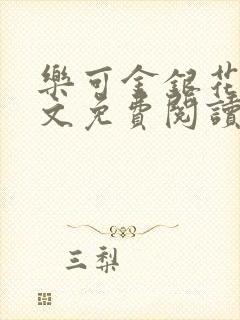 樂可金銀花
文免費閱讀
三梨